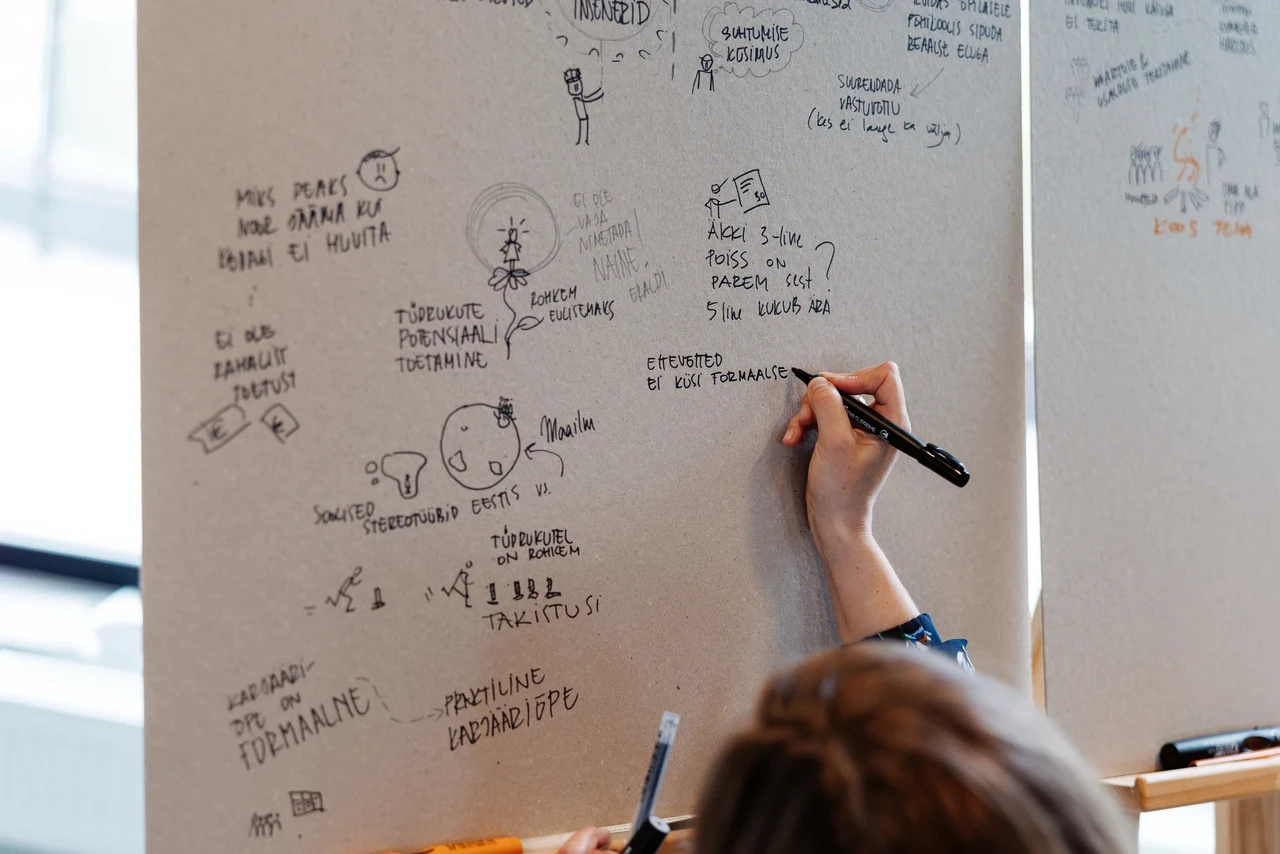 INSENERID
SUHTUMISE
KÜSIMUS
PÕHIKOOLIS SIDUDA
REAALSE ELUGA
SUURENDADA
VASTUVÕTU
(kes ei lange ka välja)
EI TEKITA
MIKS PEAKS
NOOR JÄÄMA KUI
KEDAGI EI HUVITA
EI OLE
RAHALIST
TOETUST
€
€
EI OLE
VAJA
NIMETADA!
NAINE.
ERALDI
TÜDRUKUTE
POTENSIAALI
TOETAMINE
ROHKEM
EELISEMAKS
ÄKKI 3-line
POISS ON
PAREM sest ?
5 line KUKUB ÄRA
ETTEVÕTTED
EI KÜSI FORMAALSE
Maailm
SOOLISED
STEREOTÜÜBID EESTIS vs.
TÜDRUKUTEL
ON ROHKEM
TAKISTUSI
KARJÄÄRI-
ÕPE ON
FORMAALNE
PRAKTILINE
KARJÄÄRIÕPE
KOOS TEHA